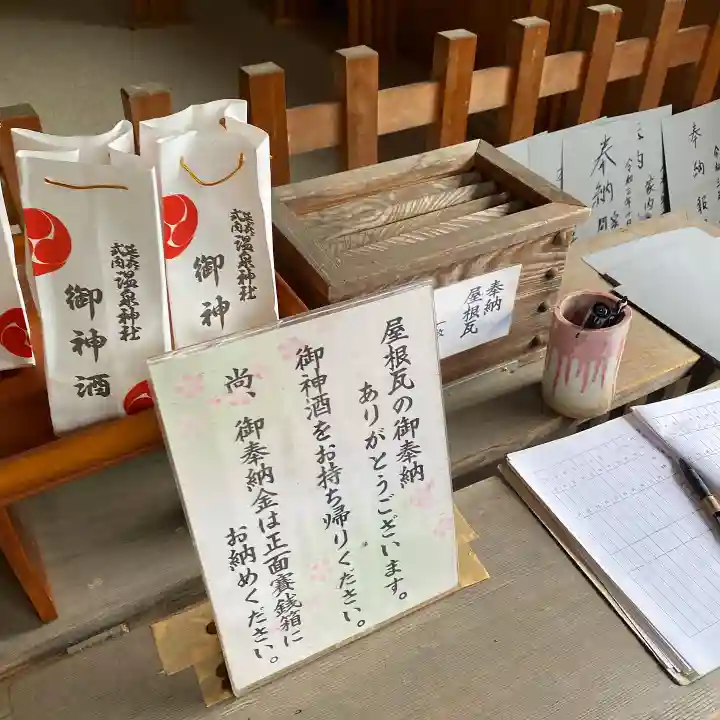 屋根瓦の御奉納
ありがとうございます。
御神酒をお持ち帰りください。
尚、御奉納金は正面賽銭箱に
お納めください。
奉納
屋根瓦
式内
温泉神社
御神
式内
温泉神社
御神酒
奉納
奉納